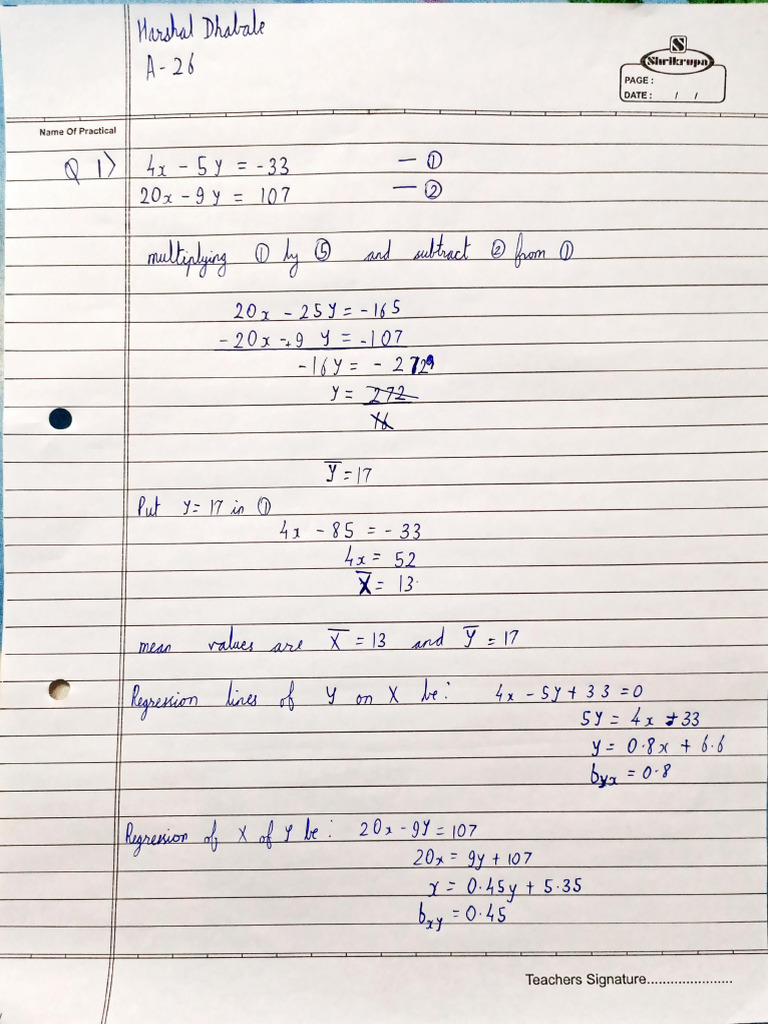 Harshal Dhabale
A-26
S
Shrikrupa
PAGE :
DATE : / /
Name Of Practical
Q 1> 4x - 5y = -33 — ①
20x - 9y = 107 — ②
multiplying ① by ⑤ and subtract ② from ①
20x - 25y = -165
- 20x -+ 9 y = -107
-16y = - 272
y = 272
16
Y̅ = 17
Put y = 17 in ①
4x - 85 = - 33
4x = 52
X̅ = 13.
mean values are X̅ = 13 and Y̅ = 17
Regression lines of Y on X be: 4x - 5y + 33 = 0
5y = 4x + 33
y = 0.8x + 6.6
byx = 0.8
Regression of X of Y be: 20x - 9y = 107
20x = 9y + 107
x = 0.45y + 5.35
bxy = 0.45
Teachers Signature......................